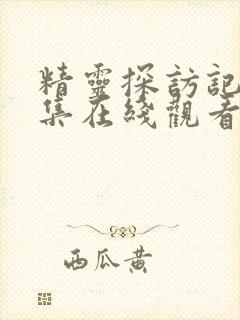 精靈探訪記
集在綫觀看
西瓜黄